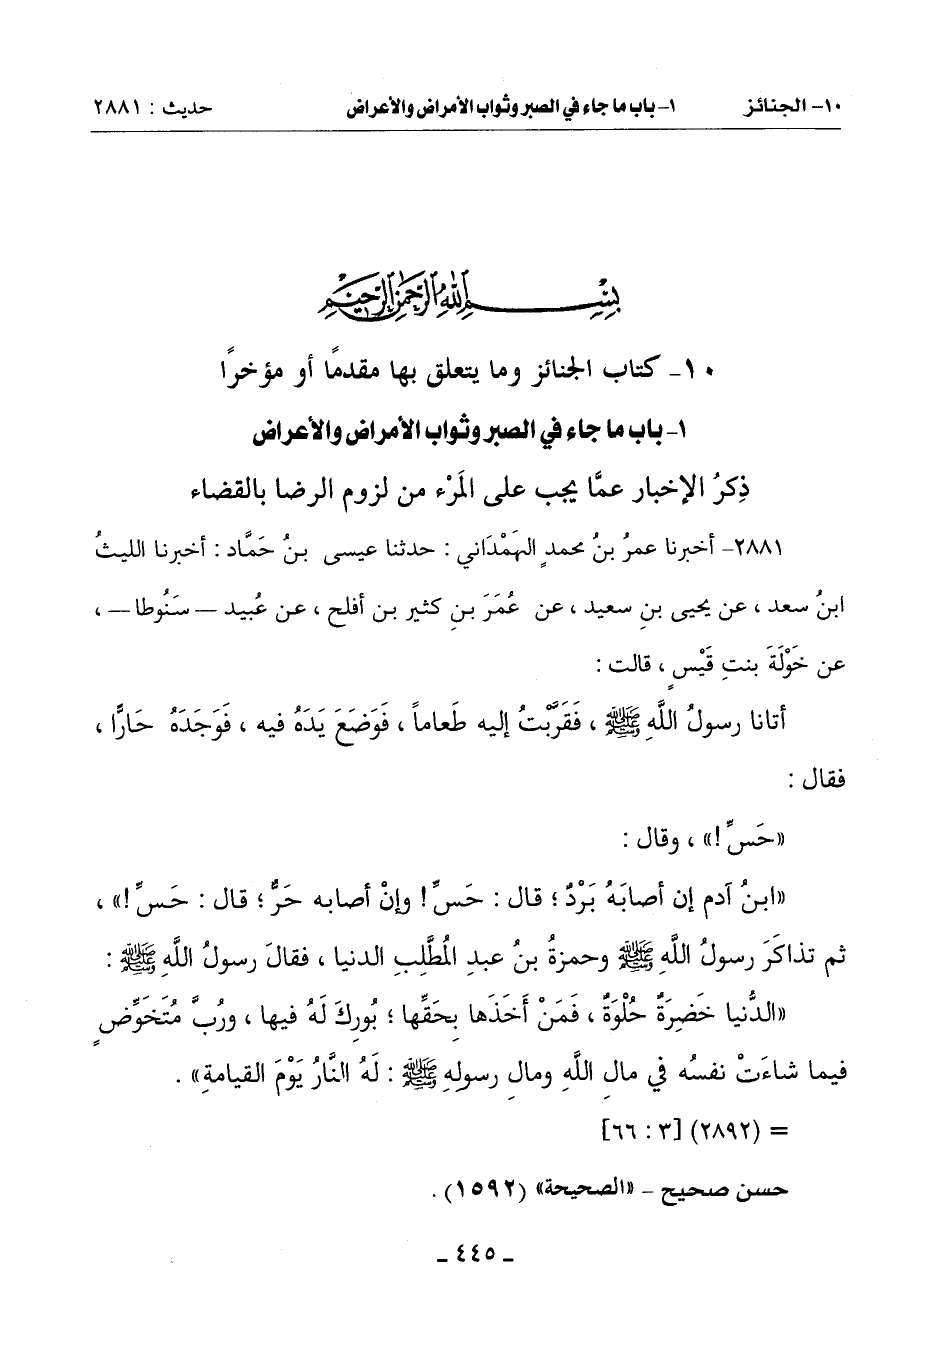 ١٠- الجنائز ١- باب ما جاء في الصبر وثواب الأمراض والأعراض حديث : ٢٨٨١
بسم الله الرحمن الرحيم
١٠- كتاب الجنائز وما يتعلق بها مقدمًا أو مؤخرًا
١- باب ما جاء في الصبر وثواب الأمراض والأعراض
ذِكرُ الإخبار عمَّا يجب على المَرْء من لزوم الرضا بالقضاء
٢٨٨١- أخبرنا عمرُ بنُ محمدٍ الهَمْدَاني : حدثنا عيسى بنُ حَمَّاد : أخبرنا الليثُ
ابنُ سعد ، عن يحيى بنِ سعيد ، عن عُمَرَ بنِ كثير بن أفلح ، عن عُبيد – سَنُوطا – ،
عن خَوْلَةَ بنتِ قَيْسٍ ، قالت :
أتانا رسولُ اللَّهِ ﷺ ، فَقَرَّبْتُ إليه طَعاماً ، فَوَضَعَ يَدَهُ فيه ، فَوَجَدَهُ حَارًّا ،
فقال :
«حَسِّ !» ، وقال :
«ابنُ آدم إن أصابَهُ بَرْدٌ ؛ قال : حَسِّ ! وإنْ أصابه حَرٌّ ؛ قال : حَسِّ !» ،
ثم تذاكَرَ رسولُ اللَّهِ ﷺ وحمزةُ بنُ عبدِ المُطَّلِبِ الدنيا ، فقالَ رسولُ اللَّهِ ﷺ :
«الدُّنيا خَضِرَةٌ حُلْوَةٌ ، فَمَنْ أَخَذَها بِحَقِّها ؛ بُورِكَ لَهُ فيها ، ورُبَّ مُتَخَوِّضٍ
فيما شاءَتْ نفسُه في مالِ اللَّهِ ومالِ رسولِهِ ﷺ : لَهُ النَّارُ يَوْمَ القيامةِ» .
= (٢٨٩٢) [٣ : ٦٦]
حسن صحيح – «الصحيحة» (١٥٩٢) .
– ٤٤٥ –